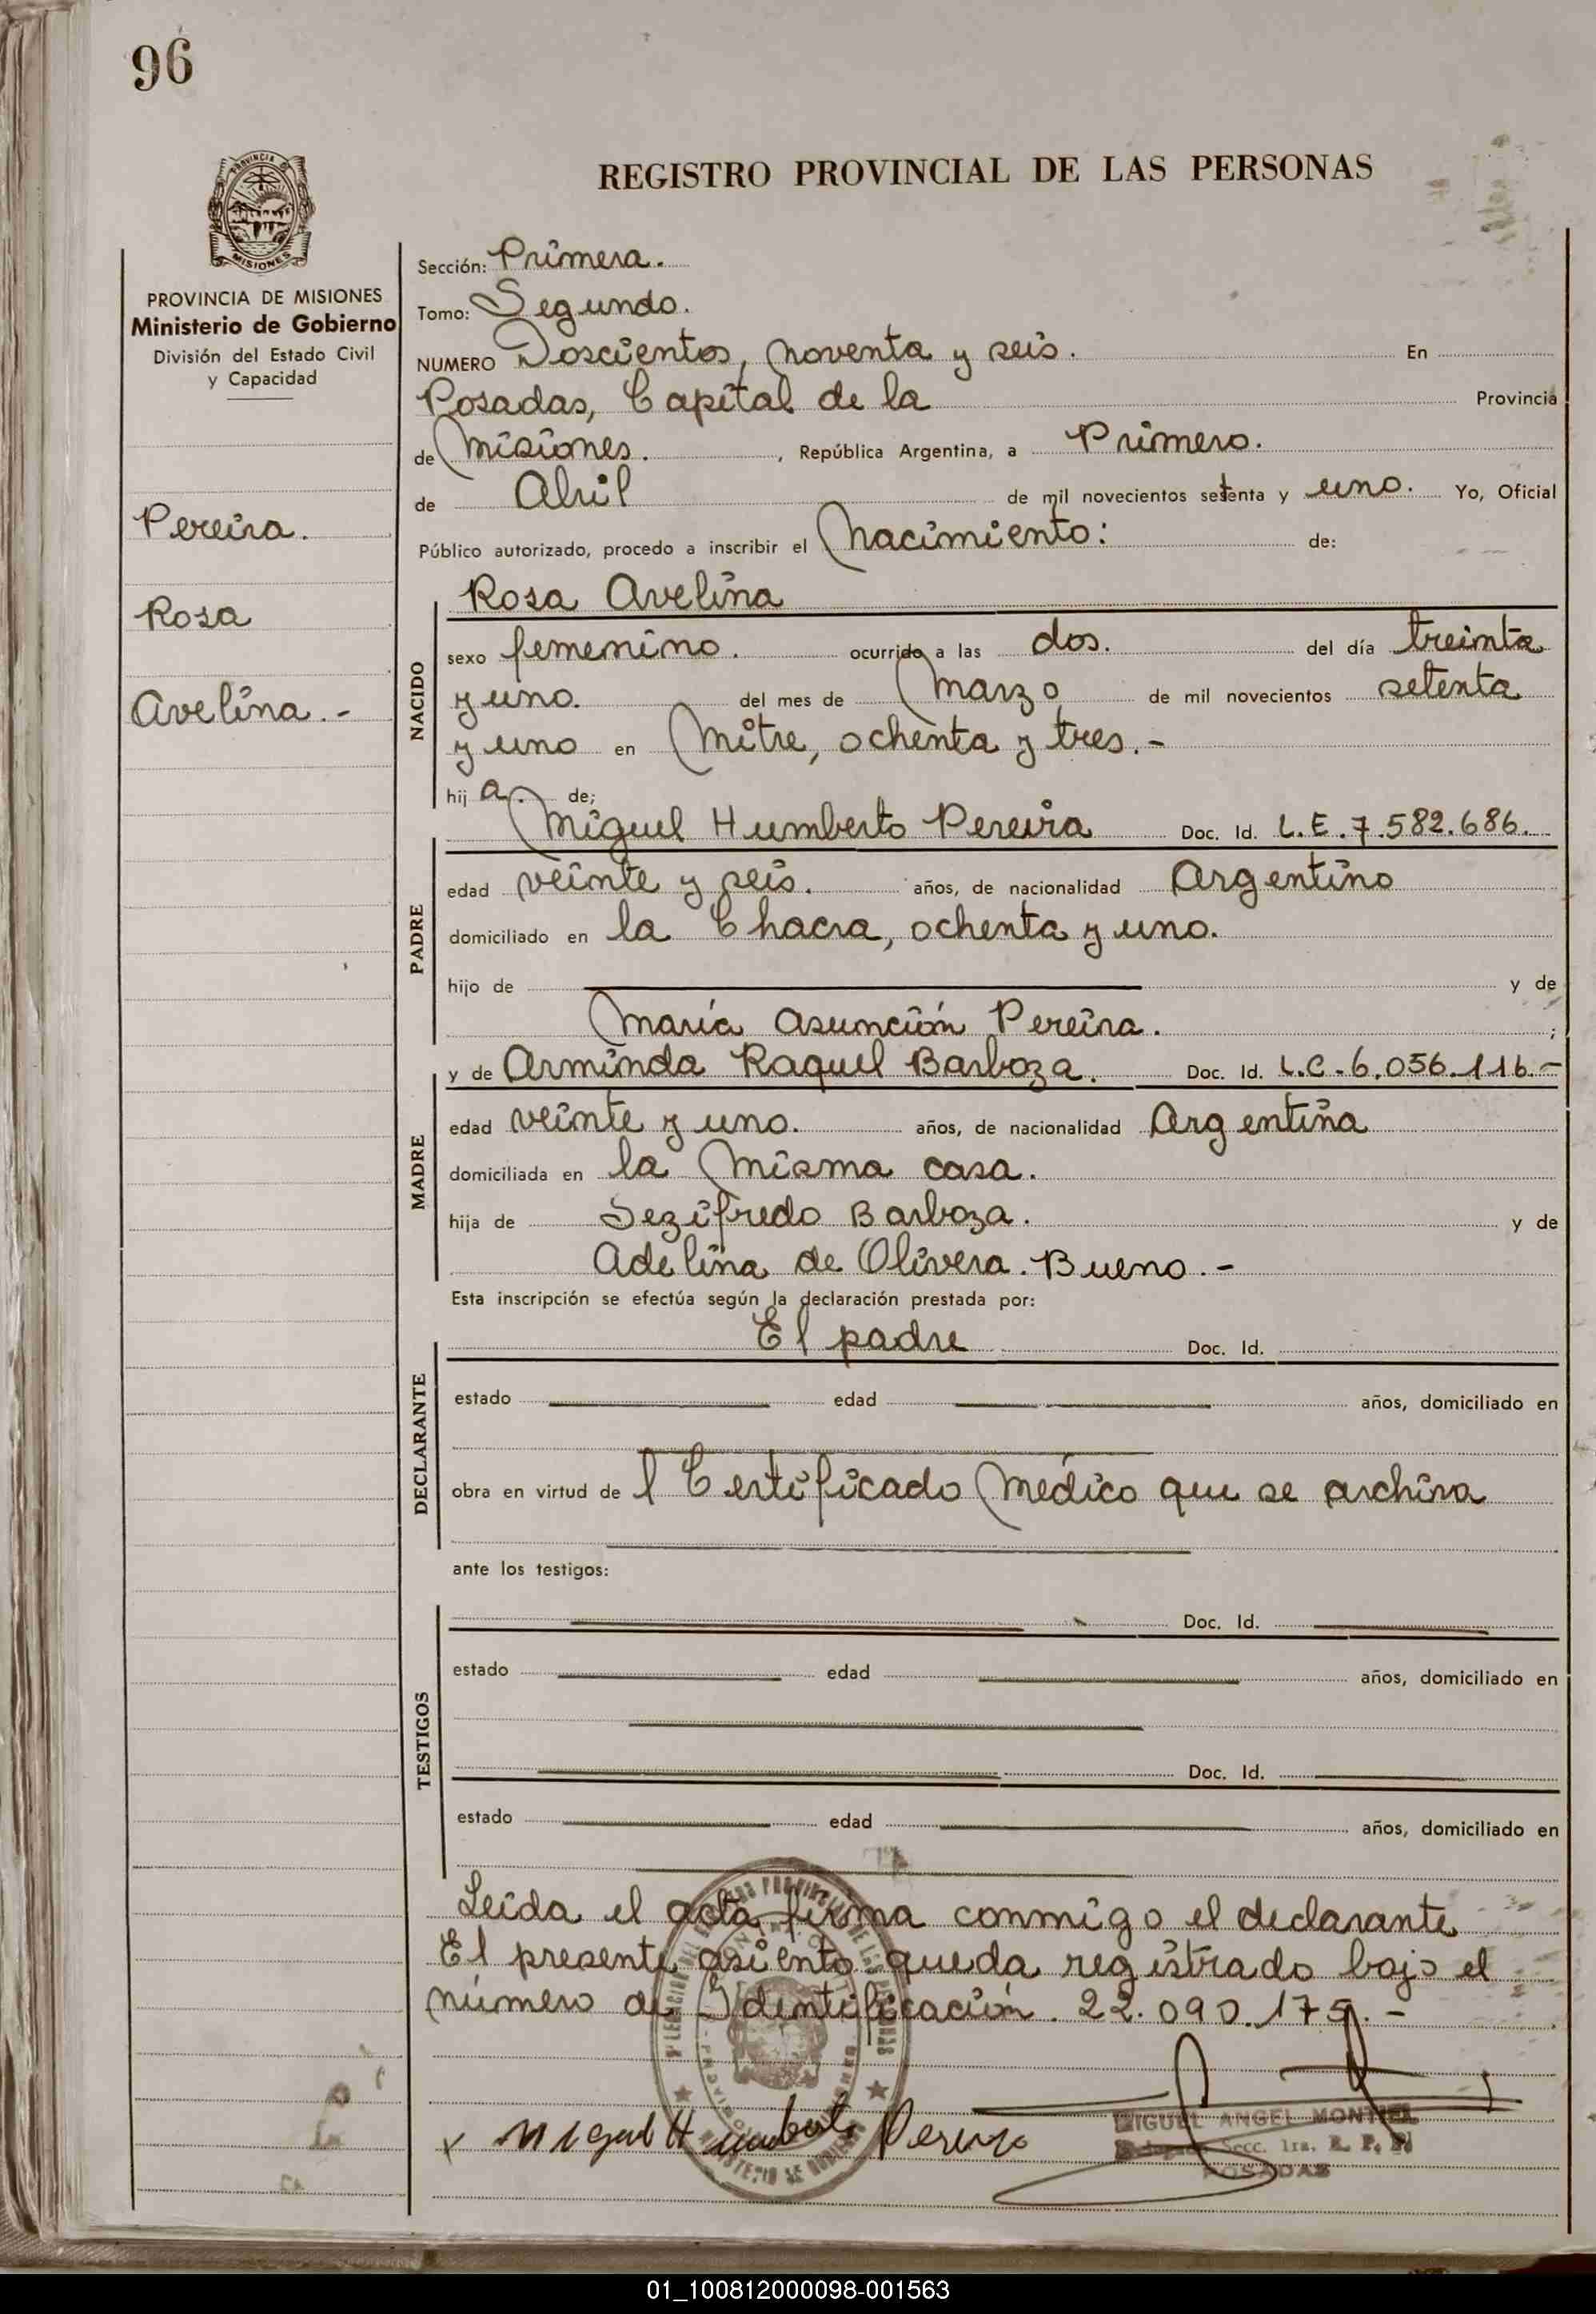 96
PROVINCIA DE
MISIONES
REGISTRO PROVINCIAL DE LAS PERSONAS
PROVINCIA DE MISIONES
Ministerio de Gobierno
División del Estado Civil
y Capacidad
Pereira.
Rosa
Avelina.-
Sección: Primera.
Tomo: Segundo.
NUMERO Doscientos, noventa y seis. En
Posadas, Capital de la Provincia
de Misiones. , República Argentina, a Primero.
de Abril de mil novecientos setenta y uno. Yo, Oficial
Público autorizado, procedo a inscribir el Nacimiento: de:
NACIDO
Rosa Avelina
sexo femenino. ocurrido a las dos. del día treinta
y uno. del mes de Marzo de mil novecientos setenta
y uno en Mitre, ochenta y tres.-
hij a. de;
PADRE
Miguel Humberto Pereira Doc. Id. L.E.7.582.686.
edad veinte y seis. años, de nacionalidad Argentino
domiciliado en la Chacra, ochenta y uno.
hijo de y de
María Asunción Pereira. ;
MADRE
y de Arminda Raquel Barboza. Doc. Id. L.C.6.056.116.-
edad veinte y uno. años, de nacionalidad Argentina
domiciliada en la misma casa.
hija de Sezifredo Barboza. y de
Adelina de Olivera.Bueno.-
Esta inscripción se efectúa según la declaración prestada por:
DECLARANTE
El padre Doc. Id.
estado edad años, domiciliado en
obra en virtud de l Certificado Médico que se archiva
ante los testigos:
TESTIGOS
Doc. Id.
estado edad años, domiciliado en
Doc. Id.
estado edad años, domiciliado en
Leida el acta, firma conmigo el declarante
El presente asiento queda registrado bajo el
número de Identificación. 22.090.175.-
x Miguel Humberto Pereyra
MIGUEL ANGEL MONTIEL
Secc. 1ra. R. P. P.
POSADAS
01_100812000098-001563